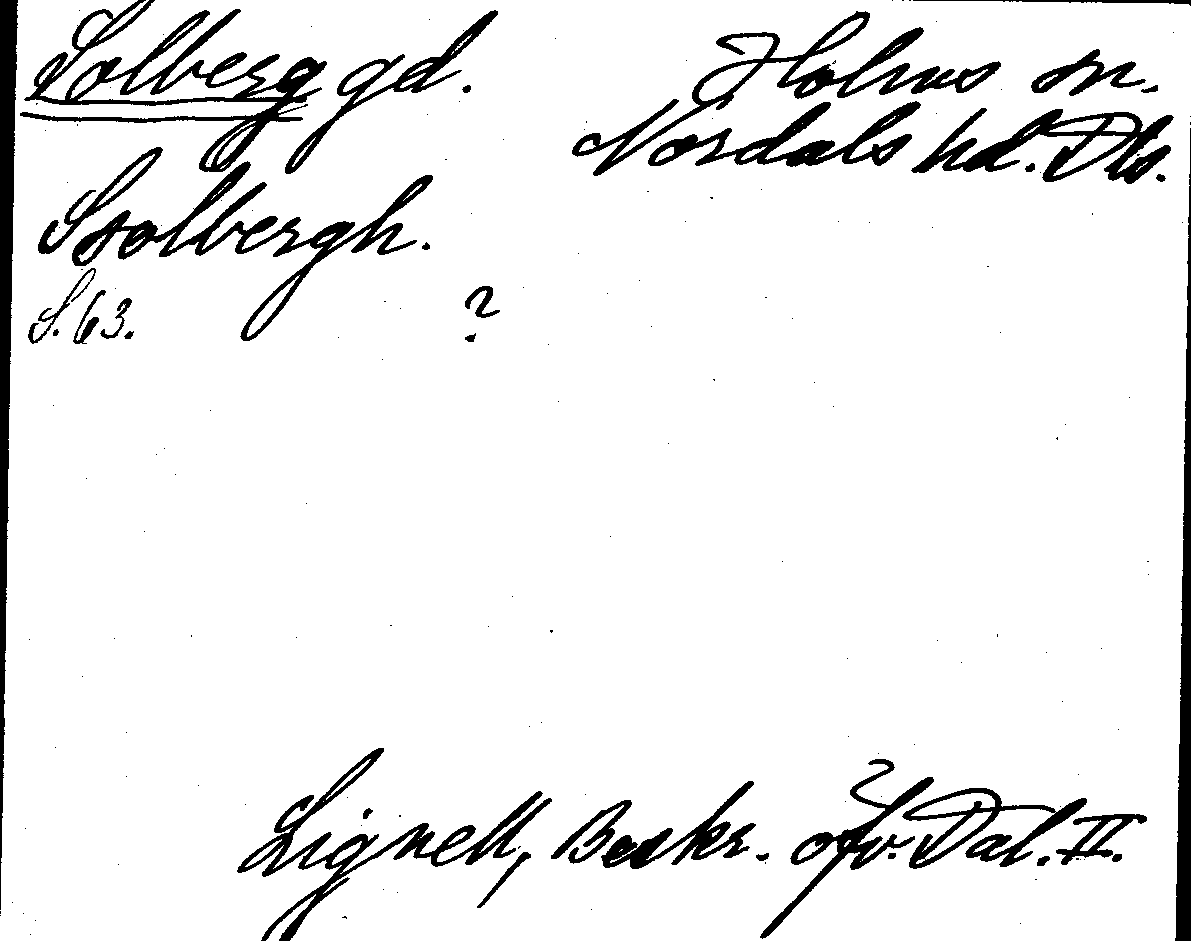 Solberg gd.
Holms sn.
Nordals hd. Dls.
Stolbergh.
S. 63. ?
Lignell, Beskr. öfv. Dal. II.